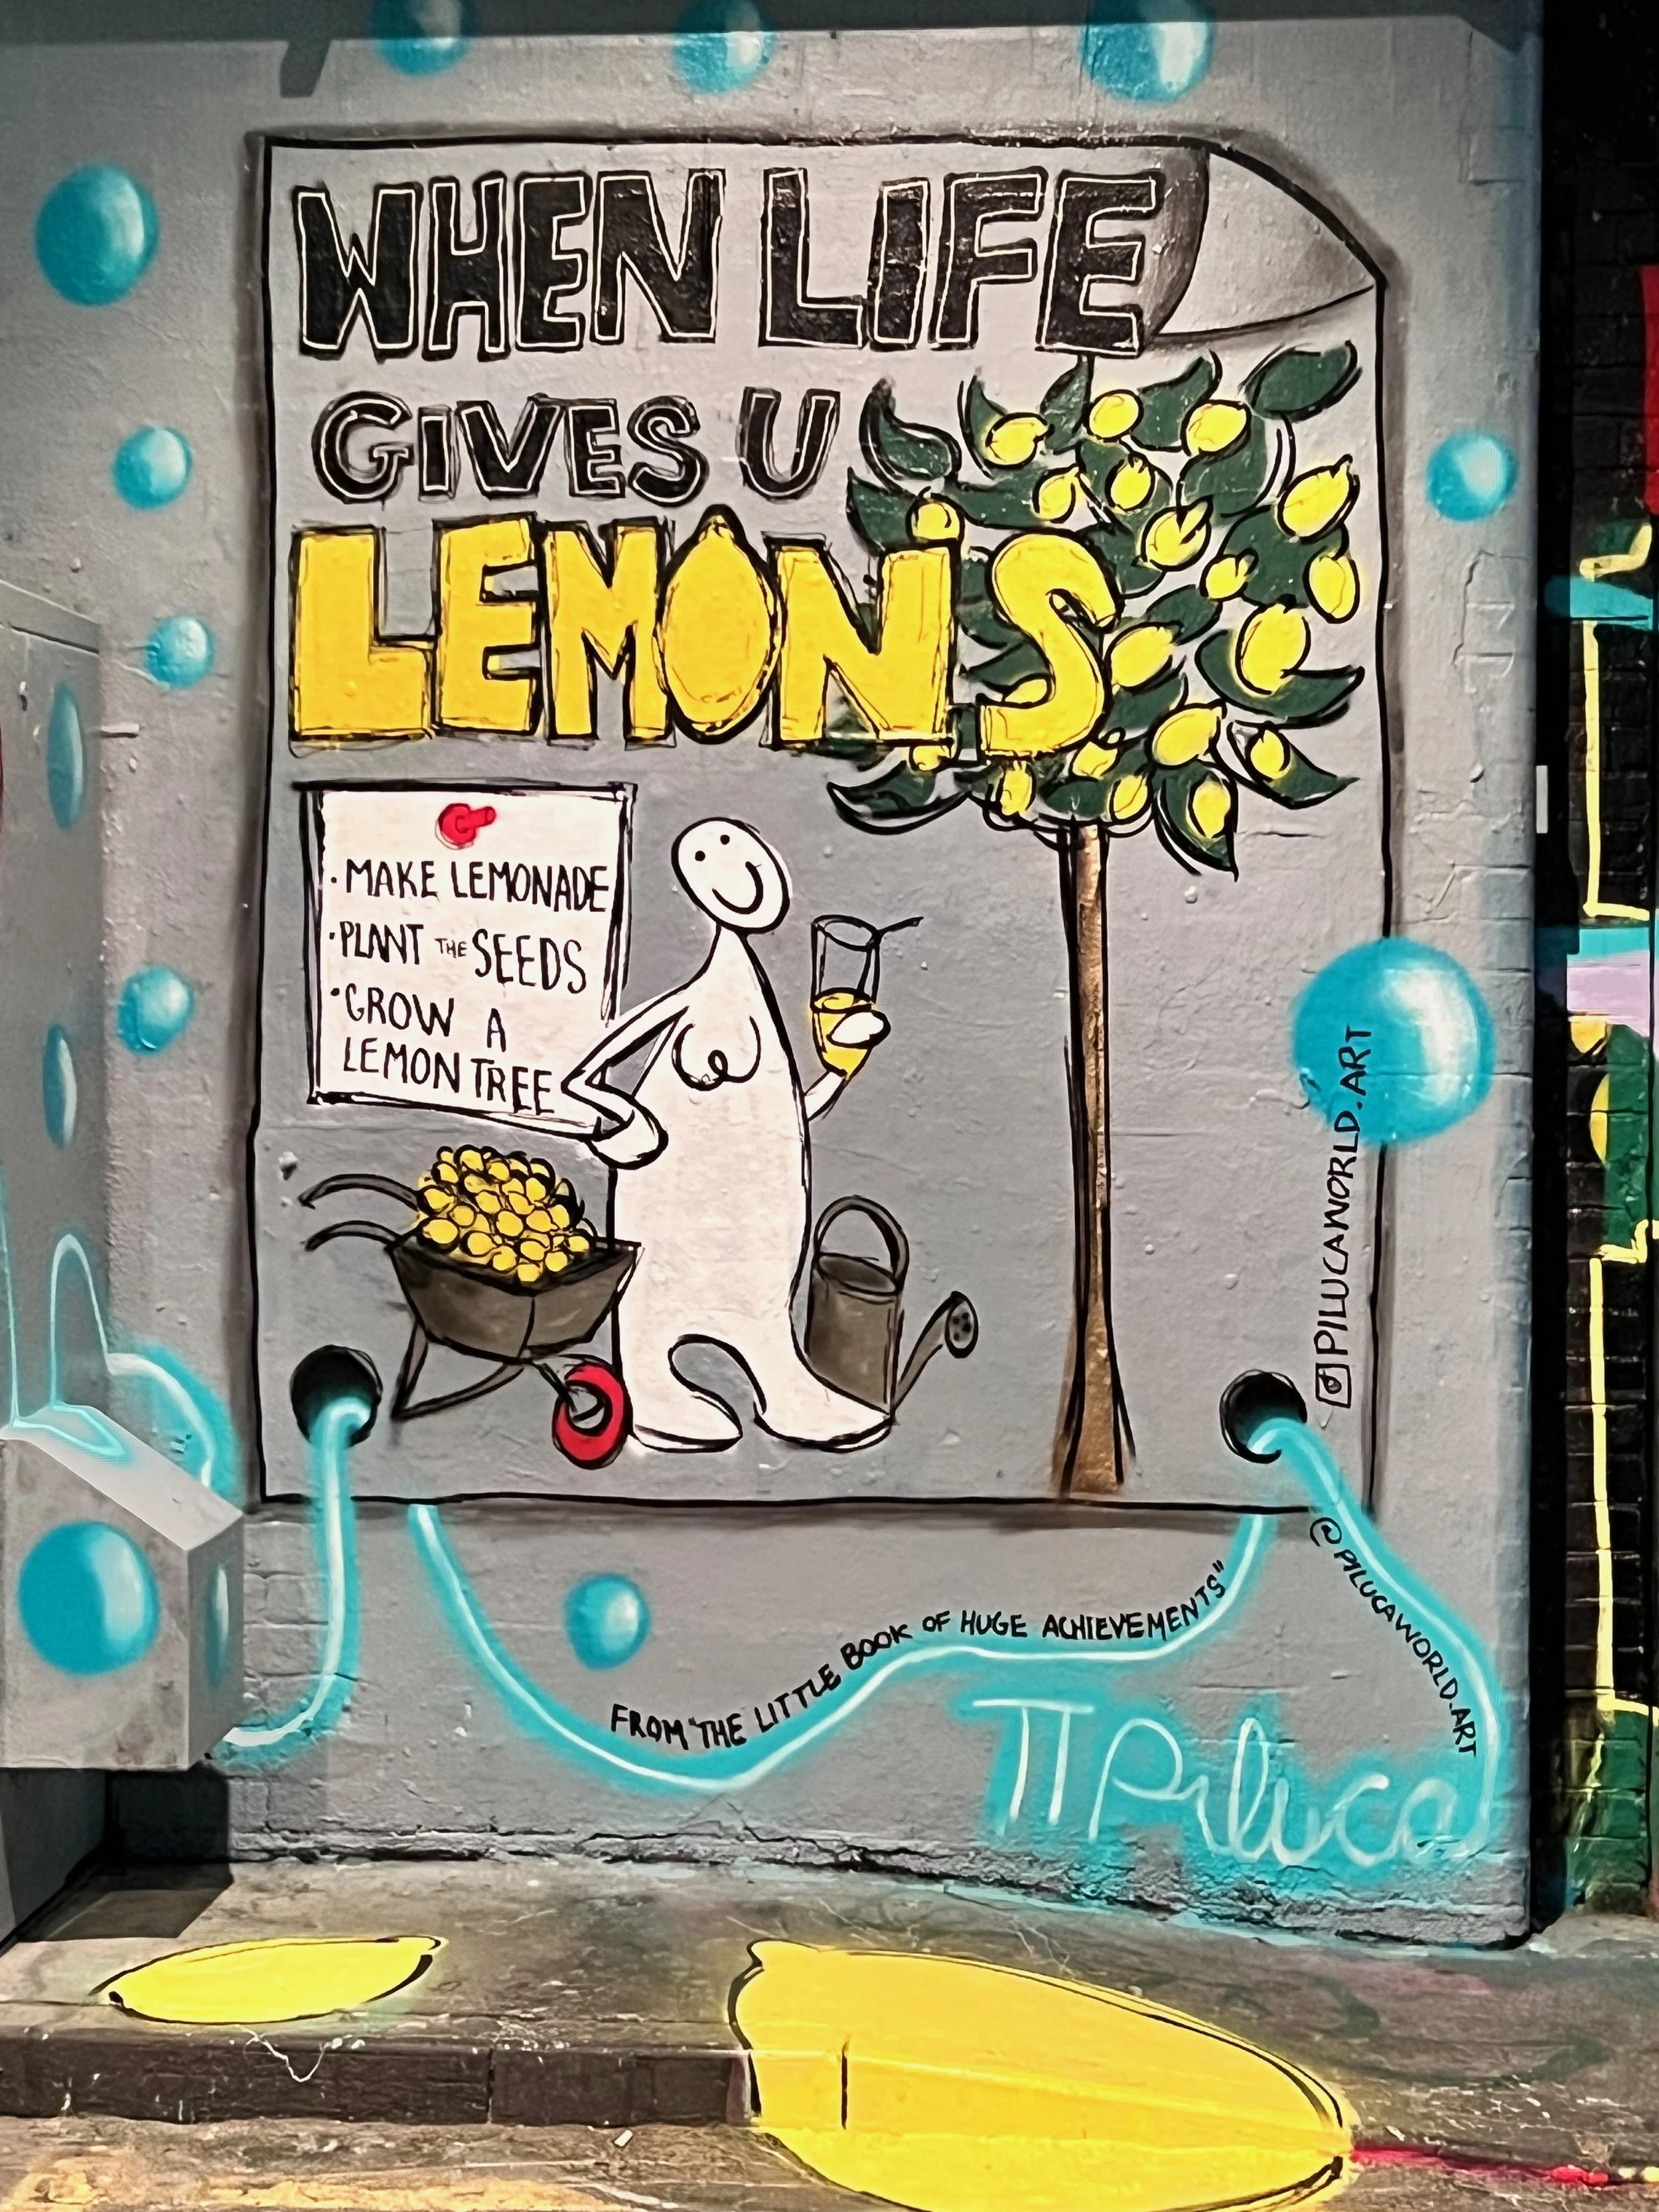 WHEN LIFE
GIVES U
LEMONS
· MAKE LEMONADE
· PLANT THE SEEDS
· GROW A
LEMON TREE
@PILUCAWORLD.ART
FROM "THE LITTLE BOOK OF HUGE ACHIEVEMENTS"
@PILUCAWORLD.ART
Piluca